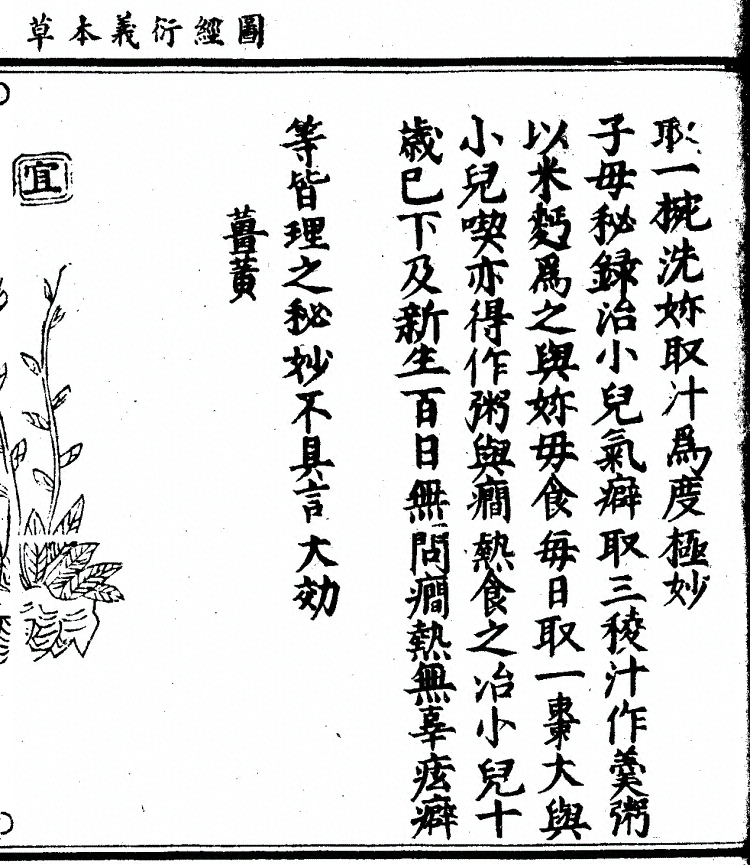 圖經衍義本草
取一掬洗妳取汁爲度極妙
子毋秘録治小兒氣癖取三稜汁作羹粥
以米麪爲之與妳毋食每日取一棗大與
小兒喫亦得作粥與癇熱食之治小兒十
歲巳下及新生百日無問癇熱無辜痃癖
等皆理之秘妙不具言大効
薑黄
宜